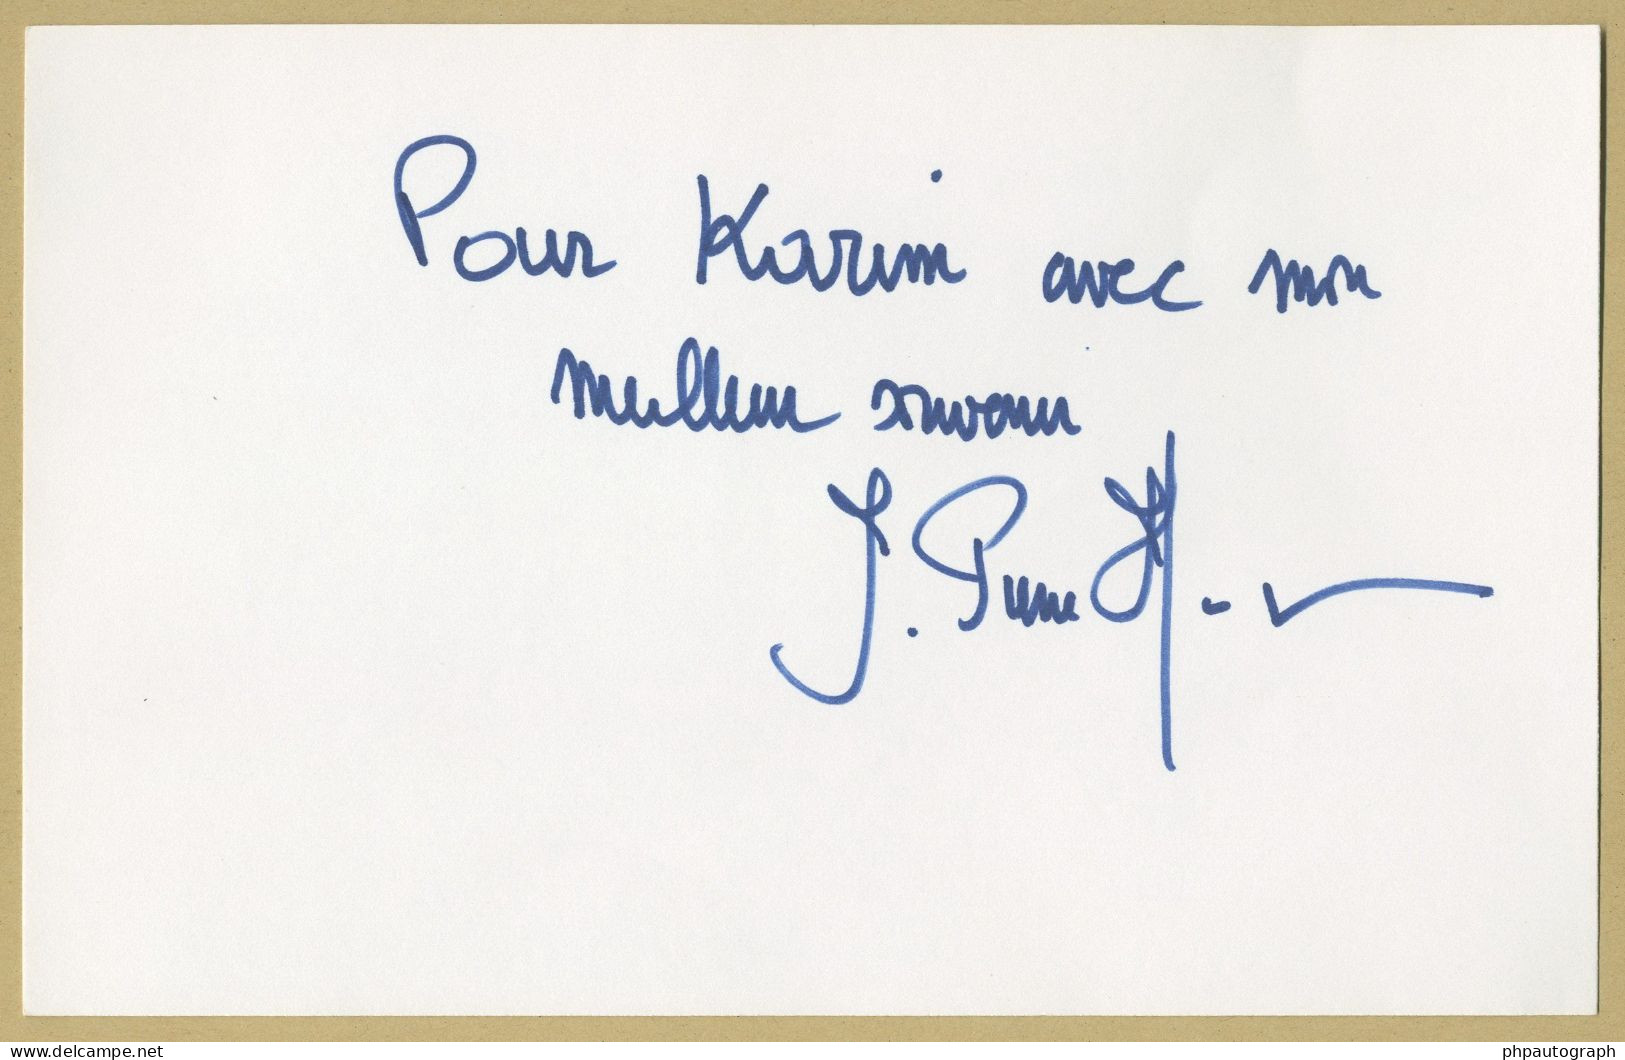 Pour Karim avec mon
meilleur souvenir
J. Pierre
www.delcampe.net
phpautograph